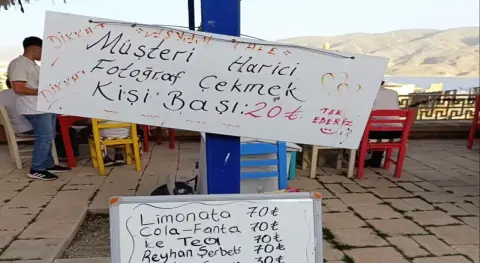 DİKKAT
DİKKAT
Müşteri Harici
Fotoğraf Çekmek
Kişi Başı: 20₺
TEK
EDERİZ
Limonata 70₺
Cola-Fanta 70₺
ice Tea 70₺
Reyhan Şerbeti 70₺
30₺